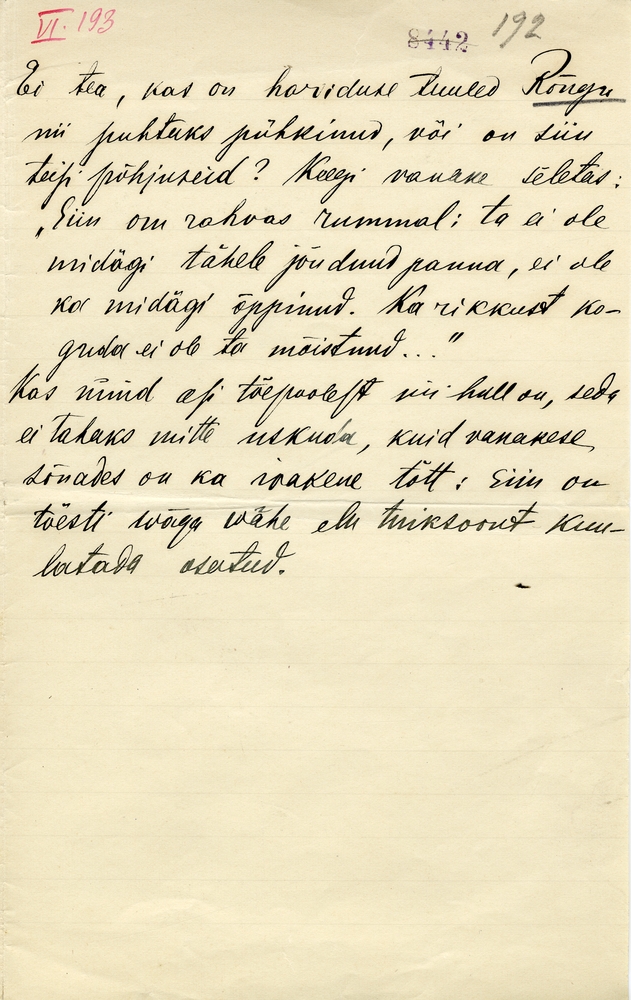 VI. 193
8442 192
Ei tea, kas on hariduse tuuled Rõngu
nii puhtaks pühkinud, või on siin
teisi põhjuseid? Keegi vanake seletas:
„Siin om rahvas rummal; ta ei ole
midägi tähele jõudnud panna, ei ole
ka midägi õppinud. Ka rikkust ko-
guda ei ole ta mõistnud..."
Kas nüüd asi tõepoolest nii hull on, seda
ei tahaks mitte uskuda, kuid vanakese
sõnades on ka ivakene tõtt: Siin on
tõesti wäga wähe elu tuiksoont kuu-
latada osatud.